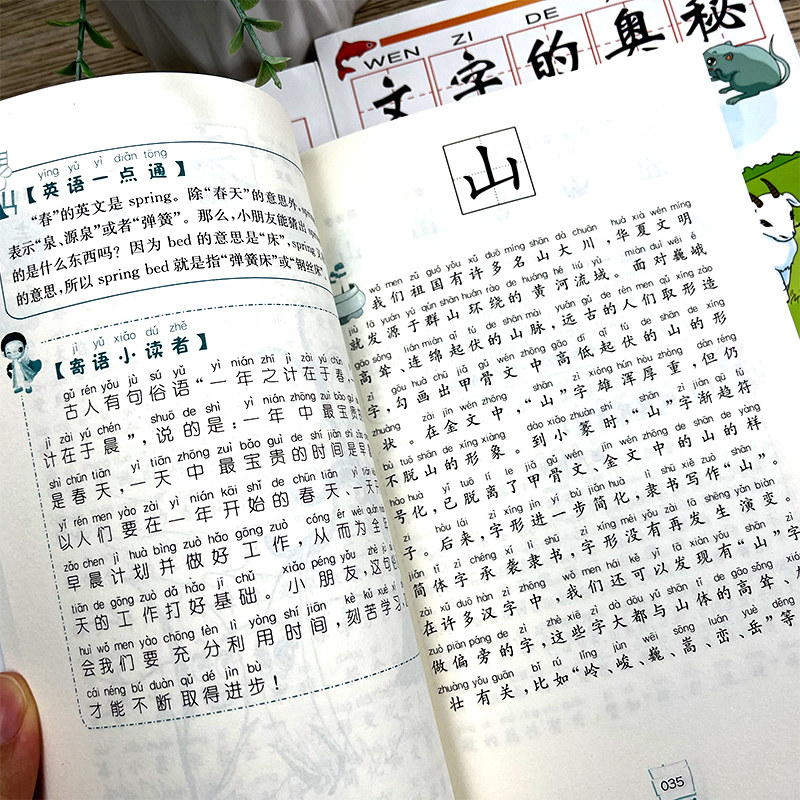 WEN ZI DE
文字的奥秘
yīng yǔ yì diǎn tōng
【英语一点通】
“春”的英文是 spring。除“春天”的意思外，
表示“泉、源泉”或者“弹簧”。那么，小朋友能猜出
的是什么东西吗？因为 bed 的意思是“床”，spring
的意思，所以 spring bed 就是指“弹簧床”或“钢丝床”
jì yǔ xiǎo dú zhě
【寄语小读者】
gǔ rén yǒu jù sú yǔ yì nián zhī jì zài yú chūn
古人有句俗语“一年之计在于春，
jì zài yú chén shuō de shì yì nián zhōng zuì bǎo guì
计在于晨”，说的是：一年中最宝贵
shì chūn tiān yì tiān zhōng zuì bǎo guì de shí jiān shì zǎo
是春天，一天中最宝贵的时间是早
yǐ rén men yào zài yì nián kāi shǐ de chūn tiān yì tiān
以人们要在一年开始的春天、一天
zǎo chen jì huà bìng zuò hǎo gōng zuò cóng ér wèi quán
早晨计划并做好工作，从而为全
tiān de gōng zuò dǎ hǎo jī chǔ xiǎo péng yǒu zhè jù
天的工作打好基础。小朋友，这句
huì wǒ men yào chōng fèn lì yòng shí jiān kè kǔ xué xí
会我们要充分利用时间，刻苦学习，
cái néng bú duàn qǔ dé jìn bù
才能不断取得进步！
山
wǒ men zǔ guó yǒu xǔ duō míng shān dà chuān huá xià wén míng
我们祖国有许多名山大川，华夏文明
jiù fā yuán yú qún shān huán rào de huáng hé liú yù miàn duì wēi é
就发源于群山环绕的黄河流域。面对巍峨
gāo sǒng lián mián qǐ fú de shān mài yuǎn gǔ de rén men qǔ xíng zào
高耸、连绵起伏的山脉，远古的人们取形造
zì gōu huà chū jiǎ gǔ wén zhōng gāo dī qǐ fú de shān de xíng
字，勾画出甲骨文中高低起伏的山的形
zhuàng zài jīn wén zhōng shān zì xióng hún hòu zhòng dàn réng
状。在金文中，“山”字雄浑厚重，但仍
bù tuō shān de xíng xiàng dào xiǎo zhuàn shí shān zì jiàn qū fú
不脱山的形象。到小篆时，“山”字渐趋符
hào huà yǐ tuō lí le jiǎ gǔ wén jīn wén zhōng de shān de yàng
号化，已脱离了甲骨文、金文中的山的样
zi hòu lái zì xíng jìn yí bù jiǎn huà lì shū xiě zuò shān
子。后来，字形进一步简化，隶书写作“山”。
jiǎn tǐ zì chéng xí lì shū zì xíng méi yǒu zài fā shēng yǎn biàn
简体字承袭隶书，字形没有再发生演变。
zài xǔ duō hàn zì zhōng wǒ men hái kě yǐ fā xiàn yǒu shān zì
在许多汉字中，我们还可以发现有“山”字
zuò piān páng de zì zhè xiē zì dà dōu yǔ shān tǐ de gāo sǒng
做偏旁的字，这些字大都与山体的高耸、
zhuàng yǒu guān bǐ rú lǐng jùn wēi sōng luán yuè děng
壮有关，比如“岭、峻、巍、嵩、峦、岳”等
035